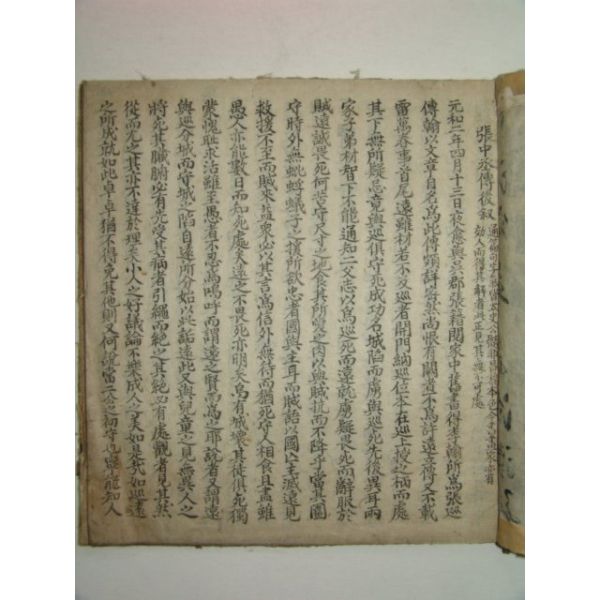 張中丞傳後叙
元和二年四月十三日夜愈與吳郡張籍閱家中舊書得李翰所爲張巡
傳翰以文章自名爲此傳頗詳密然尚恨有闕者不爲許遠立傳又不載
雷萬春事首尾遠雖材若不及巡者開門納巡位本在巡上授之柄而處
其下無所疑忌竟與巡俱守死成功名城陷而虜與巡死先後異耳兩
家子弟材智下不能通知二父志以爲巡死而遠就虜疑畏死而辭服於
賊遠誠畏死何苦守尺寸之地食其所愛之肉以與賊抗而不降乎當其圍
守時外無蚍蜉蟻子之援所欲忠者國與主耳而賊語以國亡主滅遠見
救援不至而賊來益衆必以其言爲信外無待而猶死守人相食且盡雖
愚人亦能數日而知死處矣遠之不畏死亦明矣烏有城壞其徒俱死獨
蒙愧耻求活雖至愚者不忍爲嗚呼而謂遠之賢而爲之耶說者又謂遠
與巡分城而守城之陷自遠所分始以此詬遠此又與兒童之見無異人之
將死其臟腑必有先受其病者引繩而絶之其絶必有處觀者見其然
從而尤之其亦不達於理矣小人之好議論不樂成人之美如是哉如巡遠
之所成就如此卓卓猶不得免其他則又何說當二公之初守也寧能知人